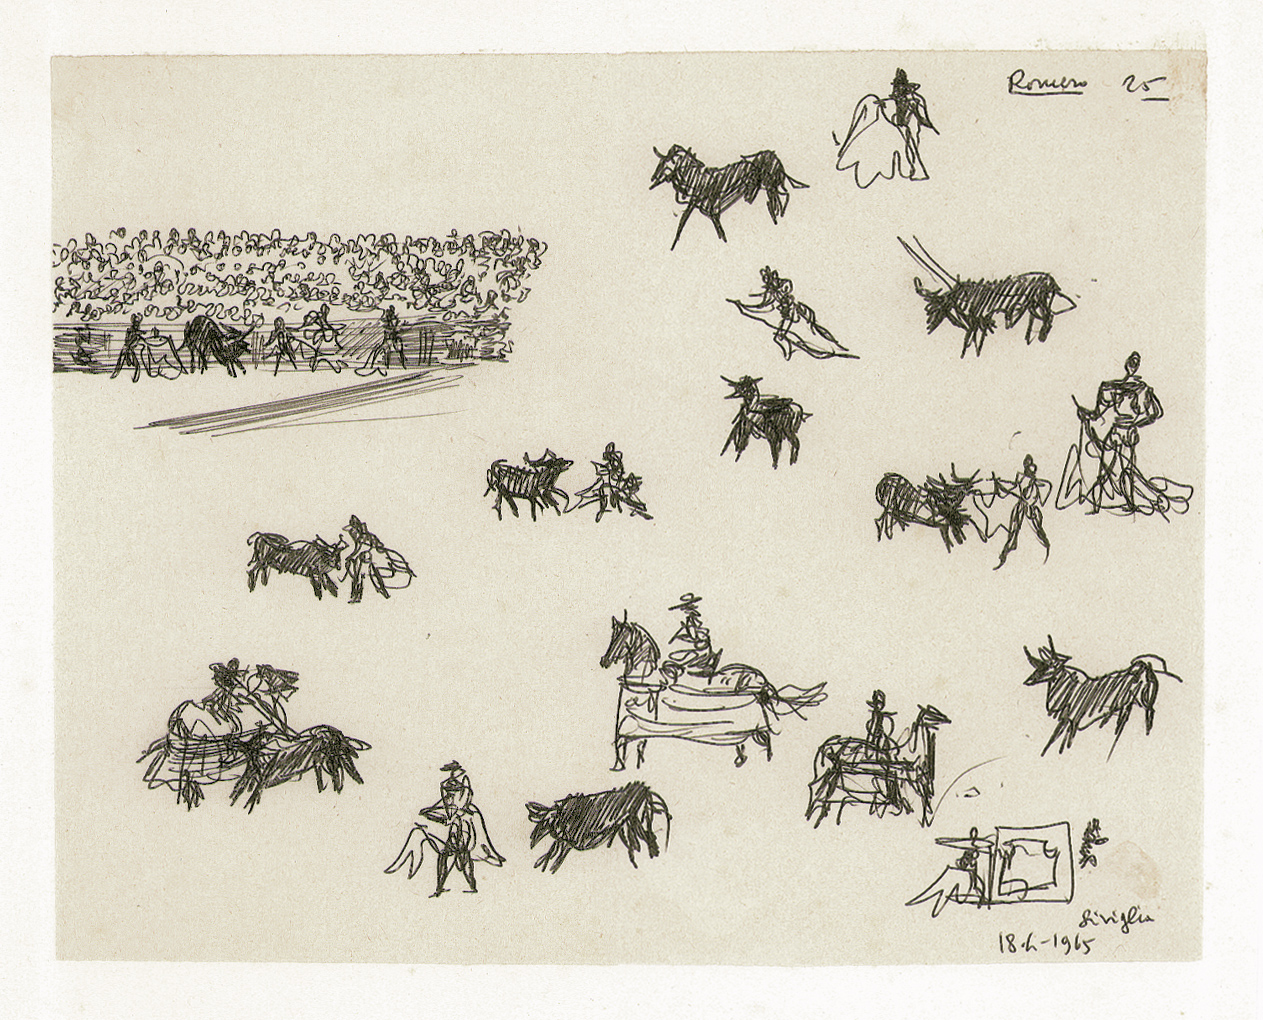 Romero 25
Siviglia
18·4-1965